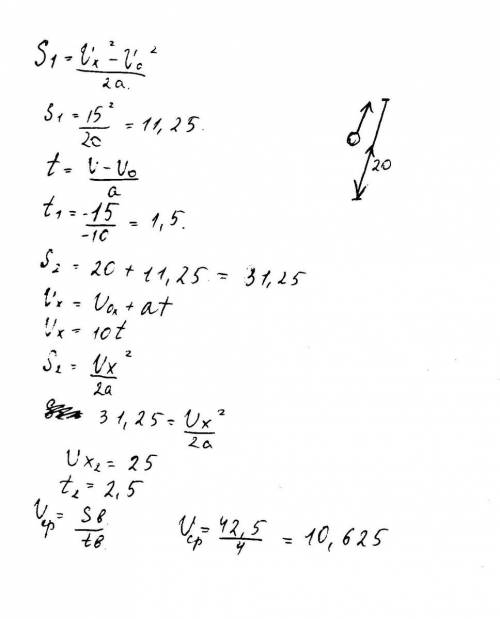 S₁ = (Vx² - V₀²)/2a.
S₁ = 15²/20 = 11,25.
t = (V - V₀)/a
t₁ = -15/-10 = 1,5.
20
S₂ = 20 + 11,25 = 31,25
Vx = V₀ₓ + at
Vx = 10t
S₂ = Vx²/2a
31,25 = Vx²/2a
Vx₂ = 25
t₂ = 2,5
Vср = Sв/tв
Vср = 42,5/4 = 10,625